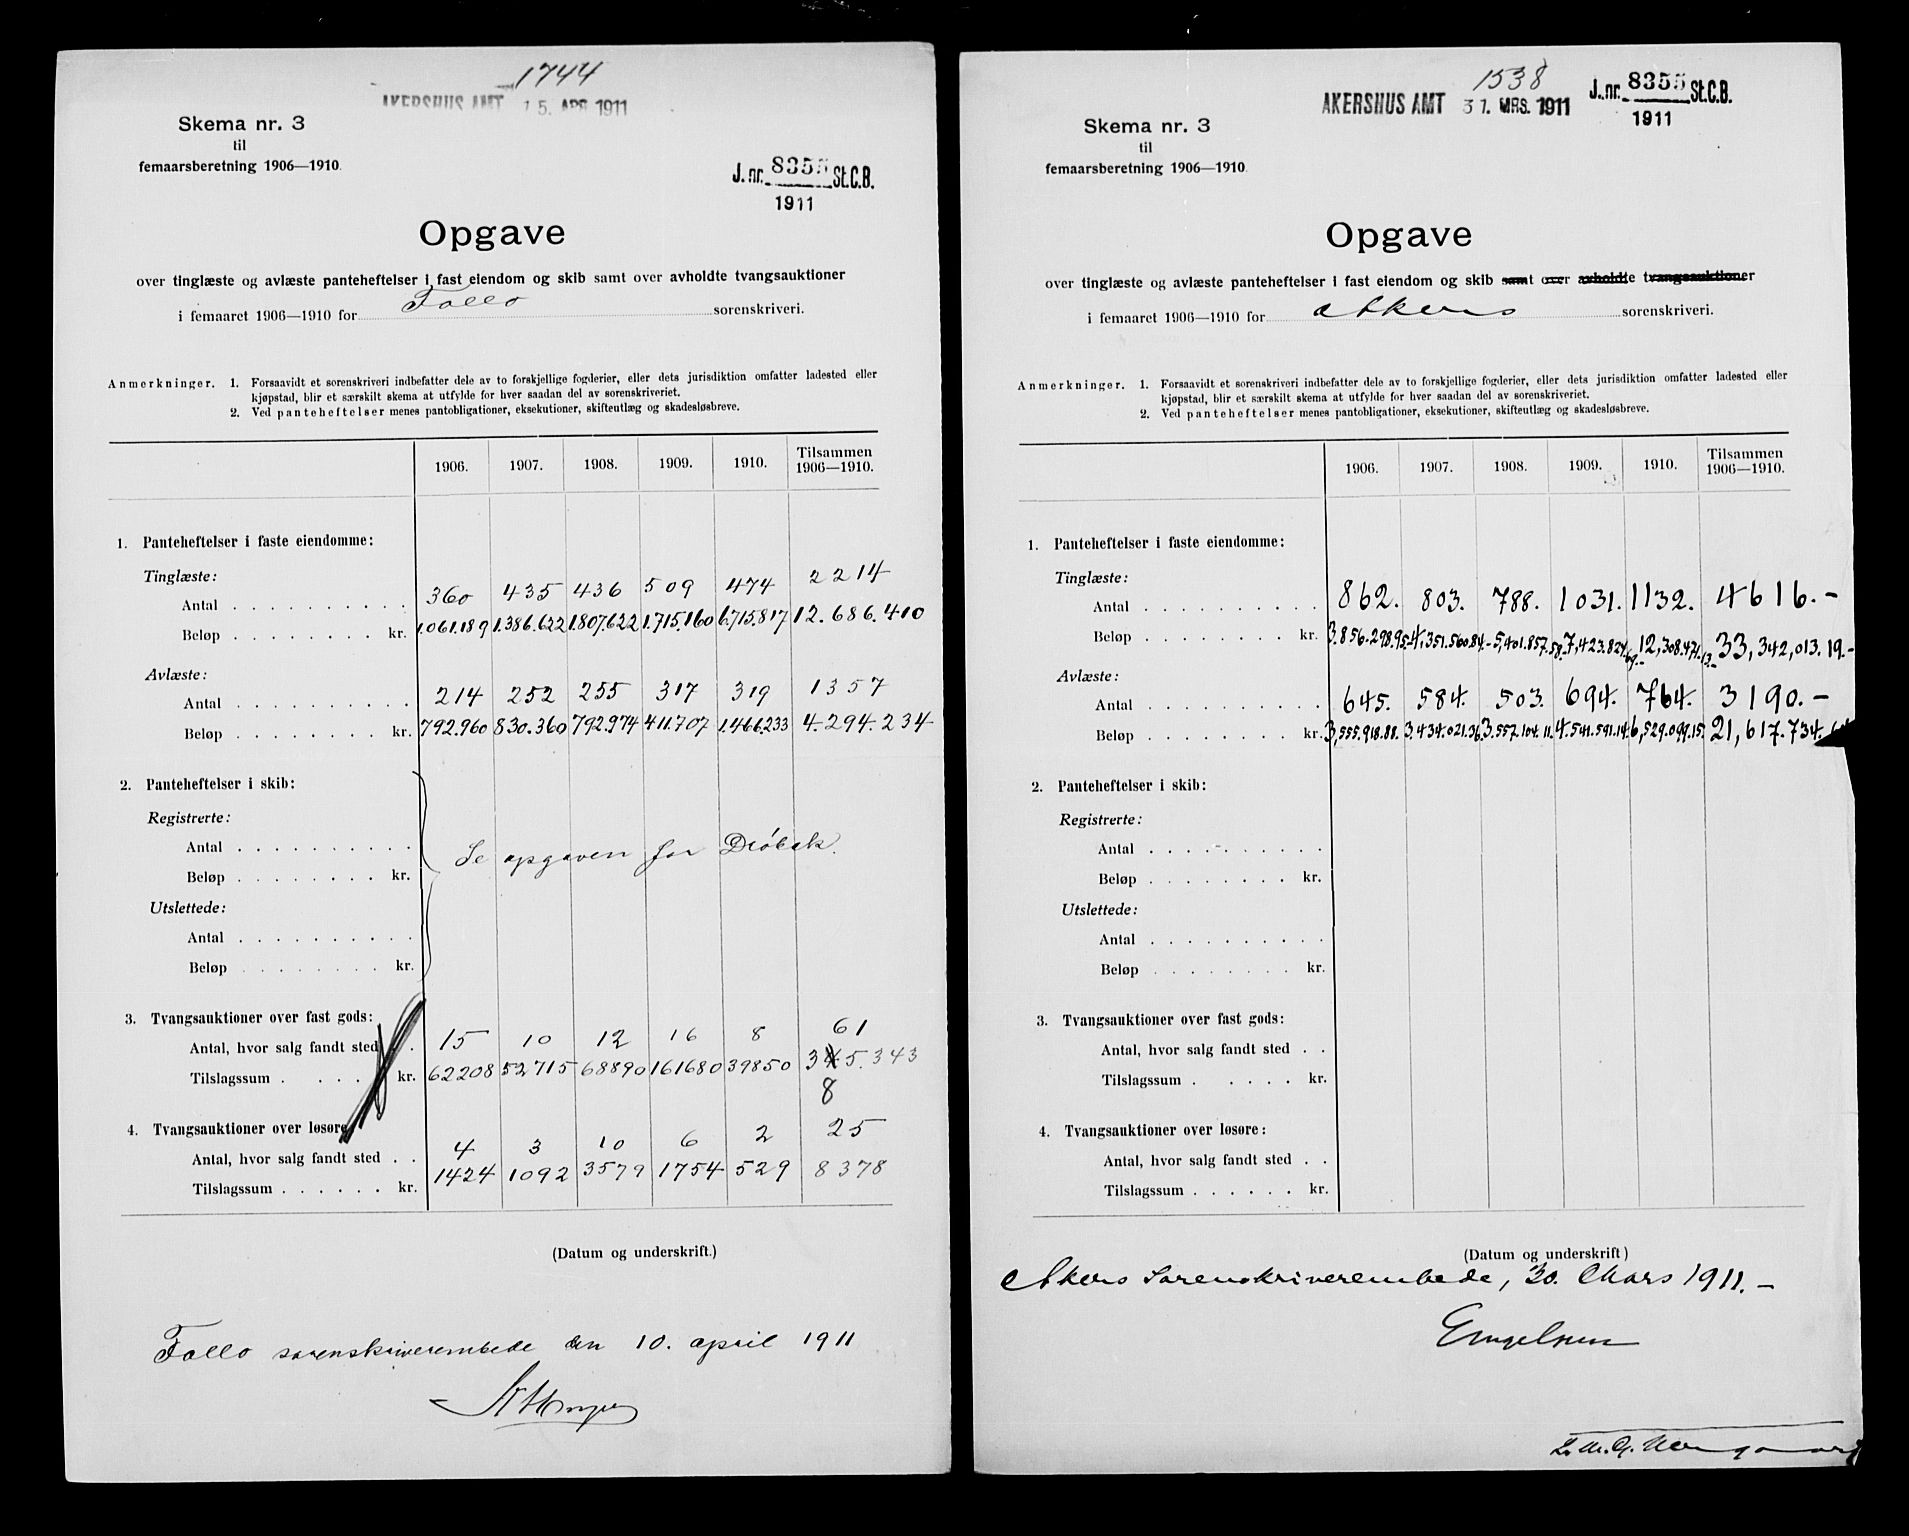 1744
AKERSHUS AMT 15. APR 1911
Skema nr. 3
til
femaarsberetning 1906—1910.
J. nr. 8355 St.C.B.
1911
Opgave
over tinglæste og avlæste panteheftelser i fast eiendom og skib samt over avholdte tvangsauktioner
i femaaret 1906—1910 for Follo sorenskriveri.
Anmerkninger. 1. Forsaavidt et sorenskriveri indbefatter dele av to forskjellige fogderier, eller dets jurisdiktion omfatter ladested eller
kjøpstad, blir et særskilt skema at utfylde for hver saadan del av sorenskriveriet.
2. Ved panteheftelser menes pantobligationer, eksekutioner, skifteutlæg og skadesløsbreve.
1906. 1907. 1908. 1909. 1910. Tilsammen 1906—1910.
1. Panteheftelser i faste eiendomme:
Tinglæste:
Antal 360 435 436 509 474 2214
Beløp kr. 1.061.189 1.386.622 1.807.622 1.715.160 6.715.817 12.686.410
Avlæste:
Antal 214 252 255 317 319 1357
Beløp kr. 792.960 830.360 792.974 411.707 1.466.233 4.294.234
2. Panteheftelser i skib:
Registrerte:
Antal
Se opgaven for Dröbak.
Beløp kr.
Utslettede:
Antal
Beløp kr.
3. Tvangsauktioner over fast gods:
Antal, hvor salg fandt sted 15 10 12 16 8 61
Tilslagssum kr. 62208 52715 68890 161680 39850 345.343
8
4. Tvangsauktioner over løsøre
Antal, hvor salg fandt sted 4 3 10 6 2 25
Tilslagssum kr. 1424 1092 3579 1754 529 8378
(Datum og underskrift.)
Follo sorenskriverembede den 10. april 1911
1538
AKERSHUS AMT 31. MRS. 1911
J. nr. 8355 St.C.B.
1911
Skema nr. 3
til
femaarsberetning 1906—1910.
Opgave
over tinglæste og avlæste panteheftelser i fast eiendom og skib samt over avholdte tvangsauktioner
i femaaret 1906—1910 for Akers sorenskriveri.
Anmerkninger. 1. Forsaavidt et sorenskriveri indbefatter dele av to forskjellige fogderier, eller dets jurisdiktion omfatter ladested eller
kjøpstad, blir et særskilt skema at utfylde for hver saadan del av sorenskriveriet.
2. Ved panteheftelser menes pantobligationer, eksekutioner, skifteutlæg og skadesløsbreve.
1906. 1907. 1908. 1909. 1910. Tilsammen 1906—1910.
1. Panteheftelser i faste eiendomme:
Tinglæste:
Antal 862. 803. 788. 1031. 1132. 4616.-
Beløp kr. 3.856.298.95. 4,351.560.84.- 5,401.857.58. 7,423.824.69.- 12,308.471.13.- 33,342,013.19.-
Avlæste:
Antal 645. 584. 503. 694. 764. 3190.-
Beløp kr. 3,555.918.88. 3.434.021.36. 3.557.104.11. 4.541.591.14. 6,529.099.15. 21,617.734.
2. Panteheftelser i skib:
Registrerte:
Antal
Beløp kr.
Utslettede:
Antal
Beløp kr.
3. Tvangsauktioner over fast gods:
Antal, hvor salg fandt sted
Tilslagssum kr.
4. Tvangsauktioner over løsøre:
Antal, hvor salg fandt sted
Tilslagssum kr.
(Datum og underskrift)
Akers Sorenskriverembede, 30. Mars 1911.-
Engelsen